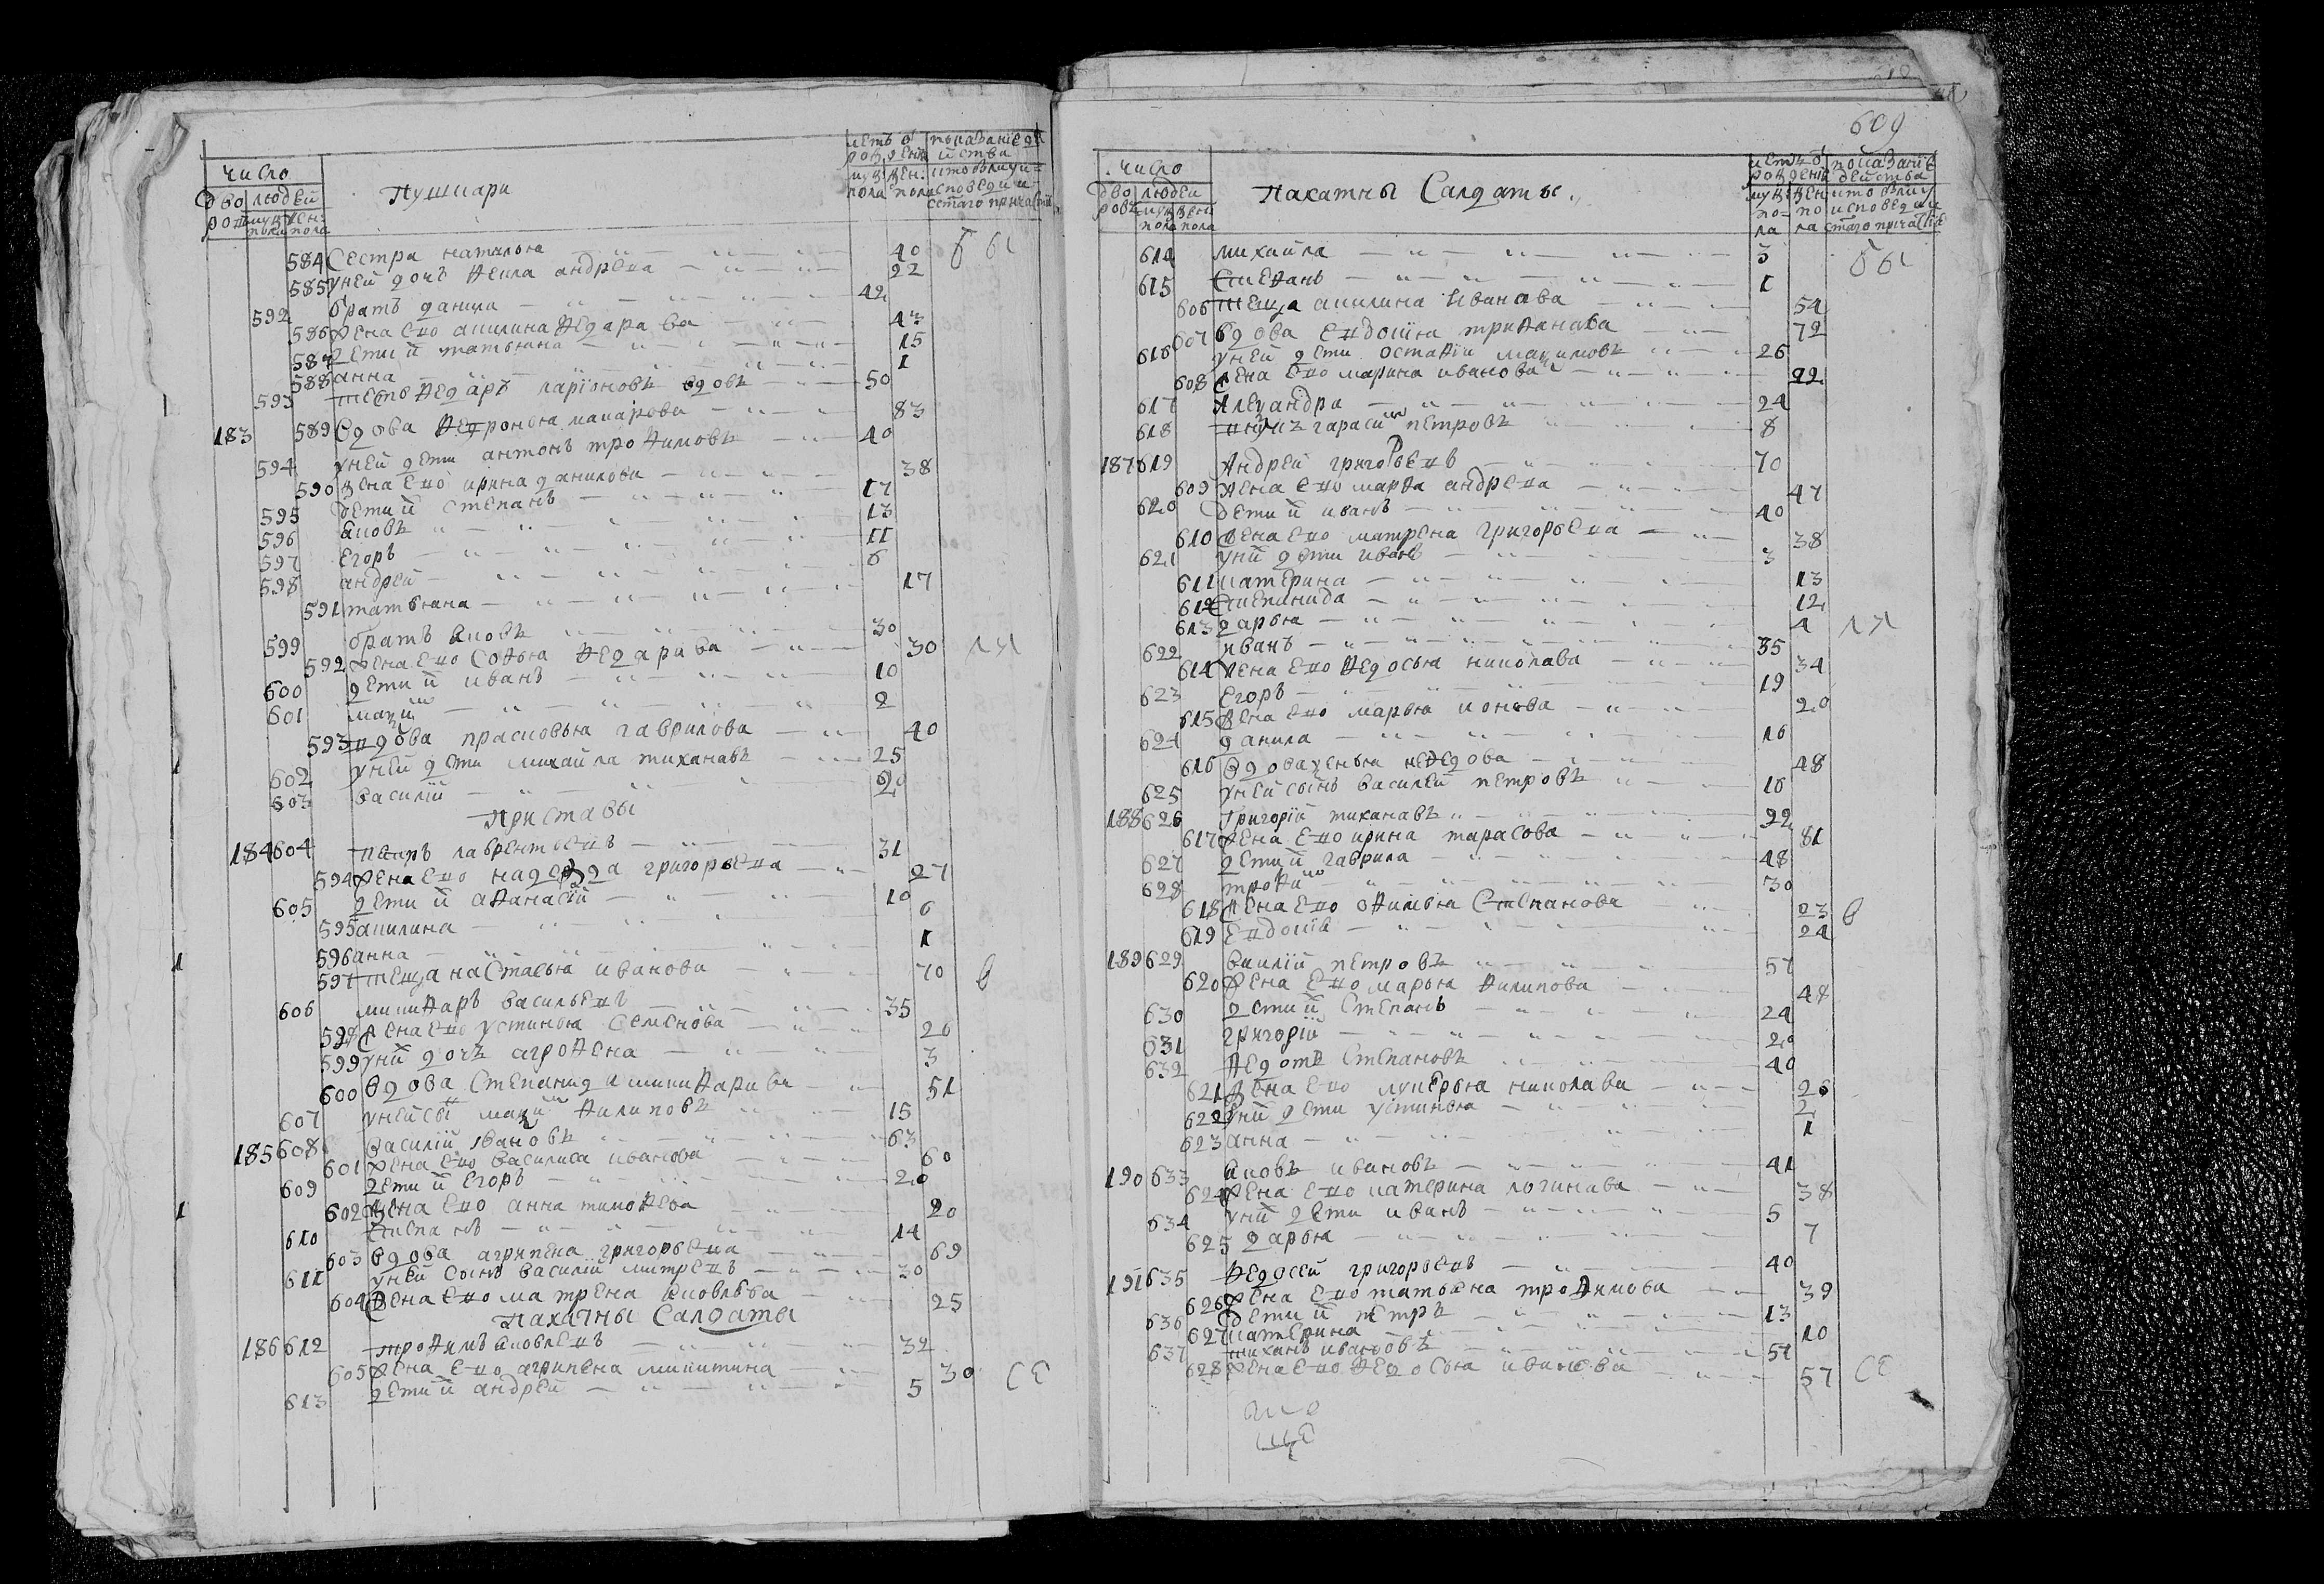 число
дво людей
ровъ муж жен
пола пола
Пушкари
летъ о рожденіи
муж пола жен пола
показаніе действа кто былъ у исповеди и святаго причастія
584 Сестра наталья 40 были
585 у ней дочь Аѳима андреева 22
592 братъ данила 42
586 жена ево акилина Ѳедарава 43
587 дети и татьяна 15
588 анна 1
593 тесть Ѳедаръ ларіоновъ вдовъ 50
183 589 Вдова Ѳедроньа макарова 83
594 у ней дети антонъ троѳимовъ 40
590 жена ево ирина данилова 38
595 дети и степанъ 17
596 яковъ 13
597 Егоръ 11
598 андрей 6
591 татьяна 17
599 братъ яковъ 30
592 жена ево Соѳья Ѳедарава 30
600 дети и иванъ 10
601 мақим 8
593 вдова прасковья гаврилова 40
602 у ней дети михайла тиханавъ 25
603 василій 20
Приставы
184 604 петръ лаврентьевъ 31
594 жена ево надежда григорьева 27
605 дети и аѳанасій 10
595 акилина 6
596 анна 1
597 теща настасья иванова 70 в
606 микиѳаръ васильевъ 35
598 жена ево устинья семенова 20
599 у ни дочь агроѳена 3
600 Вдова Степанида микиѳарава 51
607 у ней сы максим ѳилиповъ 15
185 608 василій ивановъ 63
601 жена ево василиса иванова 60
609 дети и Егоръ 20
602 жена ево анна тимоѳева 20
610 степанъ 14
603 Вдова агрипена григорьева 69
611 у ней сынъ василій митревъ 30
604 жена ево матрена яковлева 25
Пахатны Салдаты
186 612 троѳимъ яковлевъ 32
605 жена ево агрипена микитина 30
613 дети и андрей 5
609
число
дво людей
ровъ муж жен
пола пола
Пахатны Салдаты
летъ о рожденіи
муж пола жен пола
показаніе действа кто былъ у исповеди и святаго причастія
614 михайла 3 были
615 степанъ 1
606 теща акилина иванава 54
607 вдова Евдокія триѳанава 72
616 у ней дети остаѳіи макимовъ 26
608 жена ево марина иванова 22
617 Александра 24
618 внукъ гарасим петровъ 8
187 619 Андрей григорьевъ 70
609 жена ево марѳа андреева 47
620 дети и иванъ 40
610 жена ево матрена григорьева 38
621 у ни дети иванъ 3
611 катерина 13
612 степанида 12
613 дарья 4
622 иванъ 35
614 жена ево Ѳедосья николава 34
623 Егоръ 19
615 жена ево марья ионова 20
624 данила 16
616 Вдова 48
625 у ней сынъ василей петровъ 10
188 626 григорій тиханавъ 92
617 жена ево ирина тарасова 81
627 дети и гаврила 48
628 троѳим 30
618 жена ево оѳимья степанова 23 в
619 Евдокія 24
189 629 василій петровъ 57
620 жена ево марья ѳилипова 48
630 дети и степанъ 24
631 григорій 20
632 Ѳедотъ степановъ 40
621 жена ево лукерья николава 26
622 у ни дети устинья 2
623 анна 1
190 633 яковъ ивановъ 41
624 жена ево катерина логинава 38
634 у ни дети иванъ 5
625 дарья 7
191 635 Ѳедосей григорьевъ 40
626 жена ево татьяна троѳимова 39
636 дети и петръ 13
627 катерина 10
637 тиханъ ивановъ 57
628 жена ево Ѳедосья иванова 57